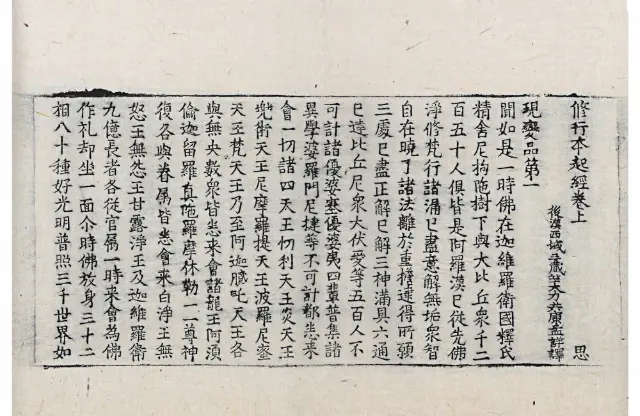 修行本起經卷上
後漢西域三藏竺大力共康孟詳譯
思
現變品第一
聞如是一時佛在迦維羅衛國釋氏
精舍尼拘陁樹下與大比丘衆千二
百五十人俱皆是阿羅漢已從先佛
淨修梵行諸漏已盡意解無垢衆智
自在曉了諸法離於重擔逮得所願
三處已盡正解已解三神滿具六通
已達比丘尼衆大伏愛等五百人不
可計諸優婆塞優婆夷四輩普集諸
異學婆羅門尼揵等不可計都悉來
會一切諸四天王忉利天王焱天王
兜術天王尼摩羅提天王波羅尼蜜
天王梵天王乃至阿迦膩吒天王各
與無央數衆皆悉來會諸龍王阿須
倫迦留羅真陁羅摩休勒一一尊神
復各與眷属皆悉會來白淨王無
怒王無怨王甘露淨王及迦維羅衛
九億長者各從官属一時來會為佛
作礼却坐一面尒時佛放身三十二
相八十種好光明普照三千世界如